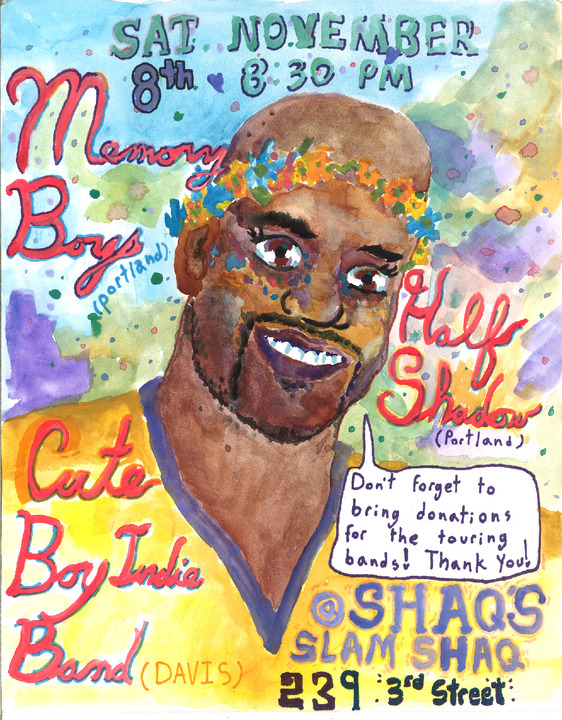 SAT NOVEMBER
8th 8:30 PM
Memory
Boys
(portland)
Half
Shadow
(Portland)
Cute
Boy Indie
Band (DAVIS)
Don't forget to
bring donations
for the touring
bands! Thank You!
@ SHAQ'S
SLAM SHAQ
239 3rd Street